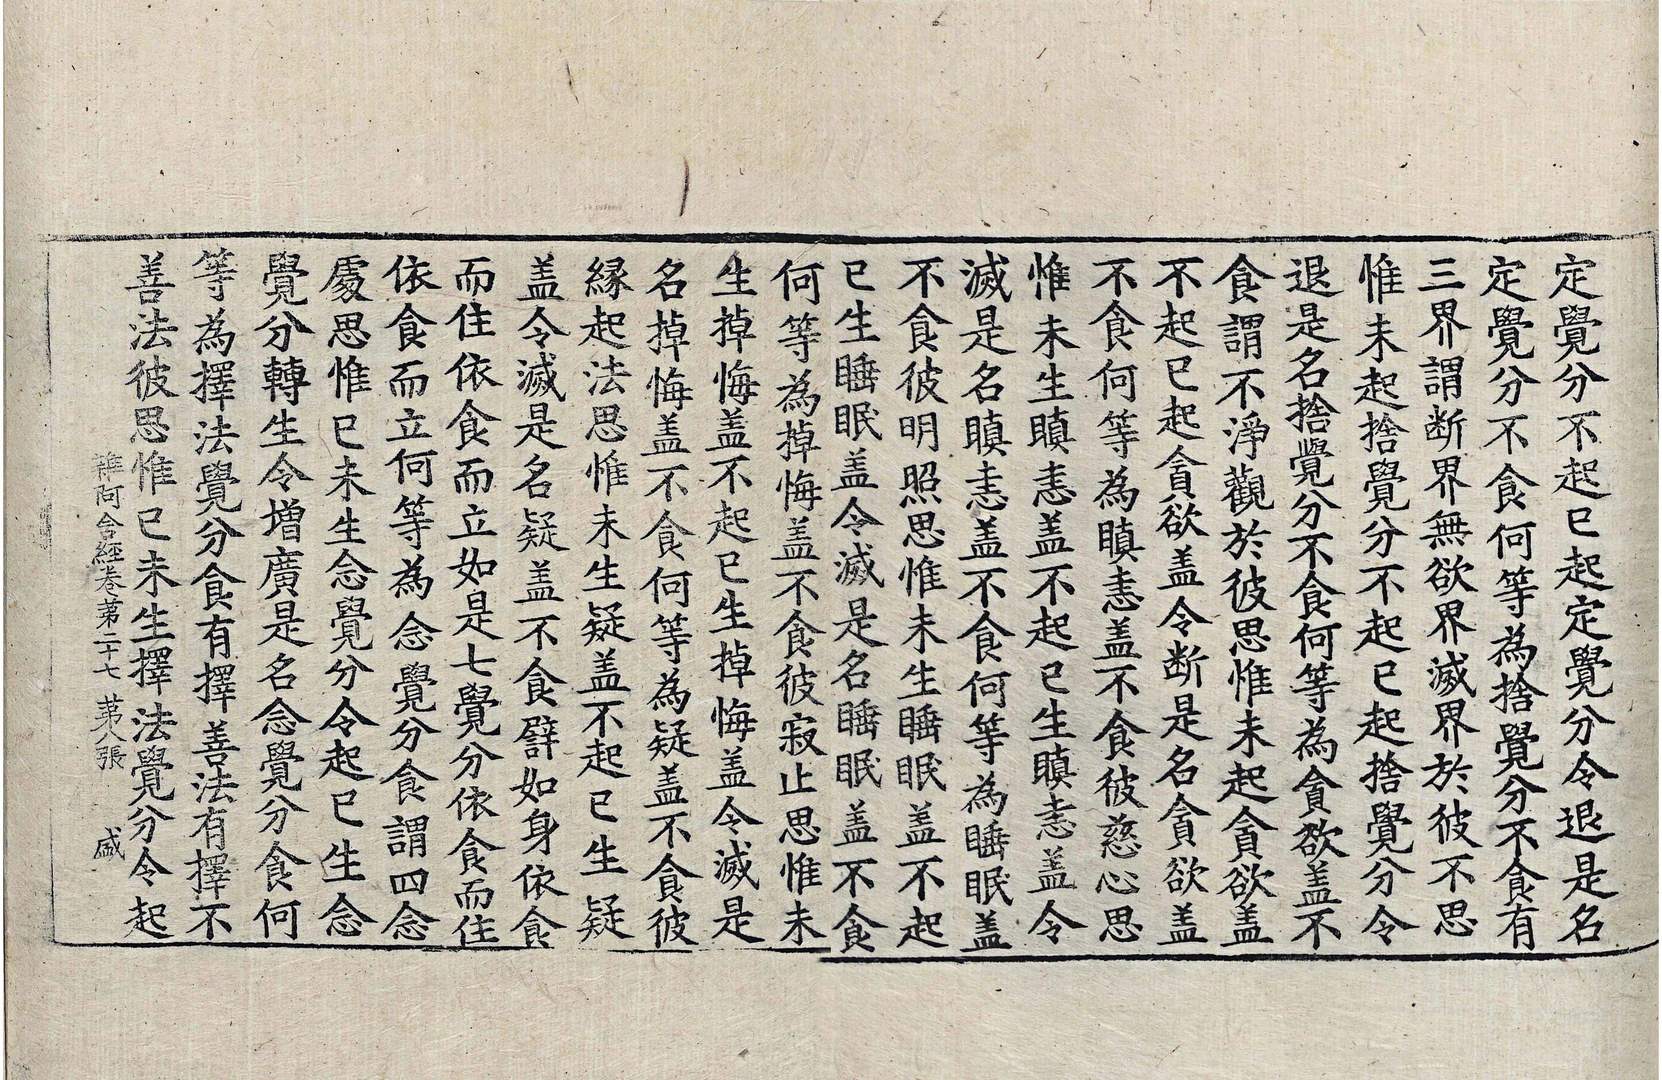 定覺分不起已起定覺分令退是名
定覺分不食何等為捨覺分不食有
三界謂断界無欲界滅界於彼不思
惟未起捨覺分不起已起捨覺分令
退是名捨覺分不食何等為貪欲盖不
食謂不淨觀於彼思惟未起貪欲盖
不起已起貪欲盖令断是名貪欲盖
不食何等為瞋恚盖不食彼慈心思
惟未生瞋恚盖不起已生瞋恚盖令
滅是名瞋恚盖不食何等為睡眠盖
不食彼明照思惟未生睡眠盖不起
已生睡眠盖令滅是名睡眠盖不食
何等為掉悔盖不食彼寂止思惟未
生掉悔盖不起已生掉悔盖令滅是
名掉悔盖不食何等為疑盖不食彼
緣起法思惟未生疑盖不起已生疑
盖令滅是名疑盖不食譬如身依食
而住依食而立如是七覺分依食而住
依食而立何等為念覺分食謂四念
處思惟已未生念覺分令起已生念
覺分轉生令增廣是名念覺分食何
等為擇法覺分食有擇善法有擇不
善法彼思惟已未生擇法覺分令起
雜阿含經卷第二十七 第八張 盛